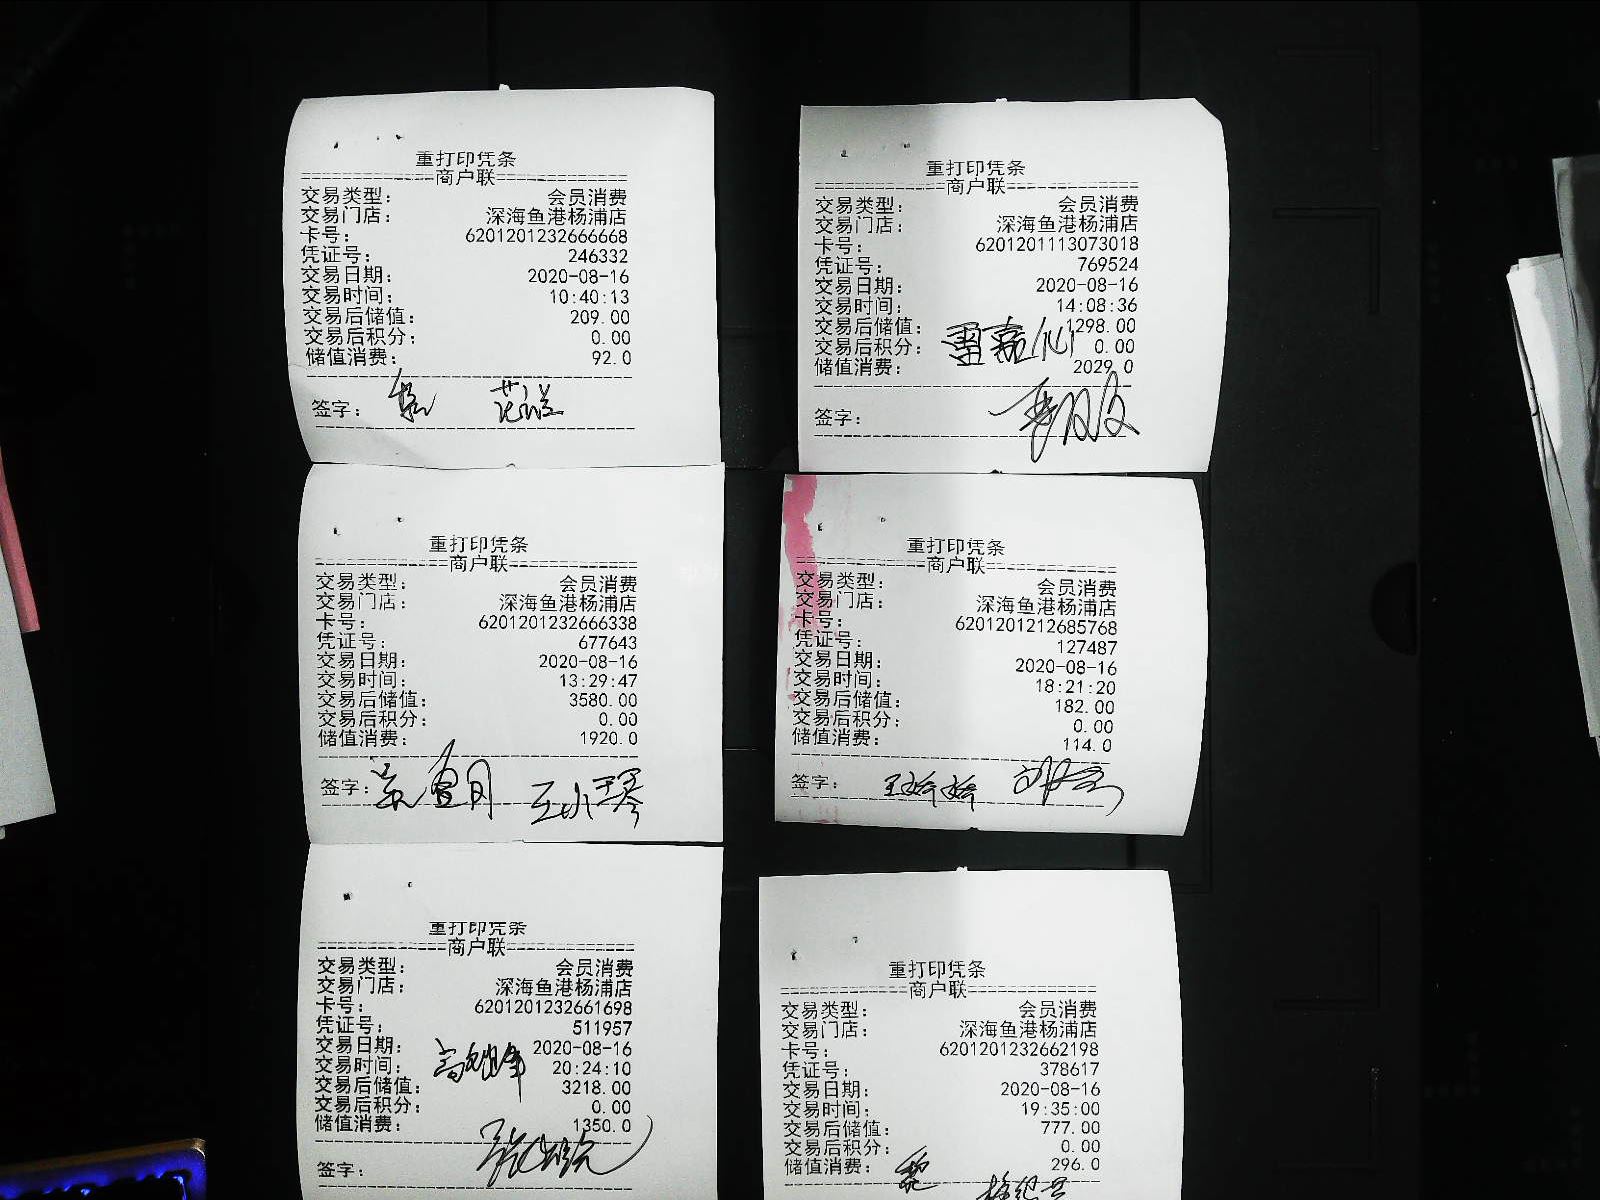 重打印凭条
商户联
交易类型： 会员消费
交易门店： 深海鱼港杨浦店
卡号： 6201201232666668
凭证号： 246332
交易日期： 2020-08-16
交易时间： 10:40:13
交易后储值： 209.00
交易后积分： 0.00
储值消费： 92.0
签字：
重打印凭条
商户联
交易类型： 会员消费
交易门店： 深海鱼港杨浦店
卡号： 6201201113073018
凭证号： 769524
交易日期： 2020-08-16
交易时间： 14:08:36
交易后储值： 1298.00
交易后积分： 0.00
储值消费： 2029.0
签字：
重打印凭条
商户联
交易类型： 会员消费
交易门店： 深海鱼港杨浦店
卡号： 6201201232666338
凭证号： 677643
交易日期： 2020-08-16
交易时间： 13:29:47
交易后储值： 3580.00
交易后积分： 0.00
储值消费： 1920.0
签字：
重打印凭条
商户联
交易类型： 会员消费
交易门店： 深海鱼港杨浦店
卡号： 6201201212685768
凭证号： 127487
交易日期： 2020-08-16
交易时间： 18:21:20
交易后储值： 182.00
交易后积分： 0.00
储值消费： 114.0
签字：
重打印凭条
商户联
交易类型： 会员消费
交易门店： 深海鱼港杨浦店
卡号： 6201201232661698
凭证号： 511957
交易日期： 2020-08-16
交易时间： 20:24:10
交易后储值： 3218.00
交易后积分： 0.00
储值消费： 1350.0
签字：
重打印凭条
商户联
交易类型： 会员消费
交易门店： 深海鱼港杨浦店
卡号： 6201201232662198
凭证号： 378617
交易日期： 2020-08-16
交易时间： 19:35:00
交易后储值： 777.00
交易后积分： 0.00
储值消费： 296.0